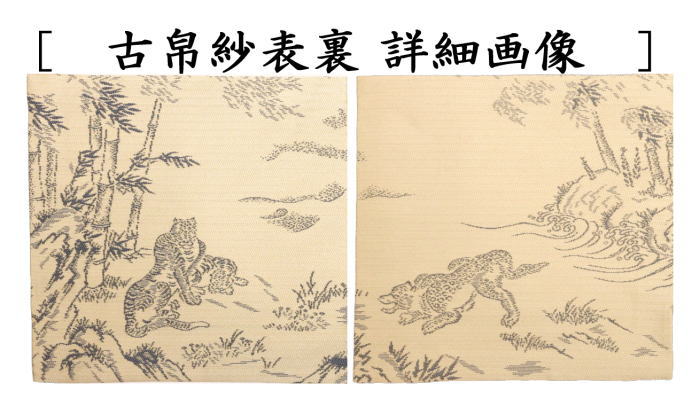 [ 古帛紗表裏 詳細画像 ]